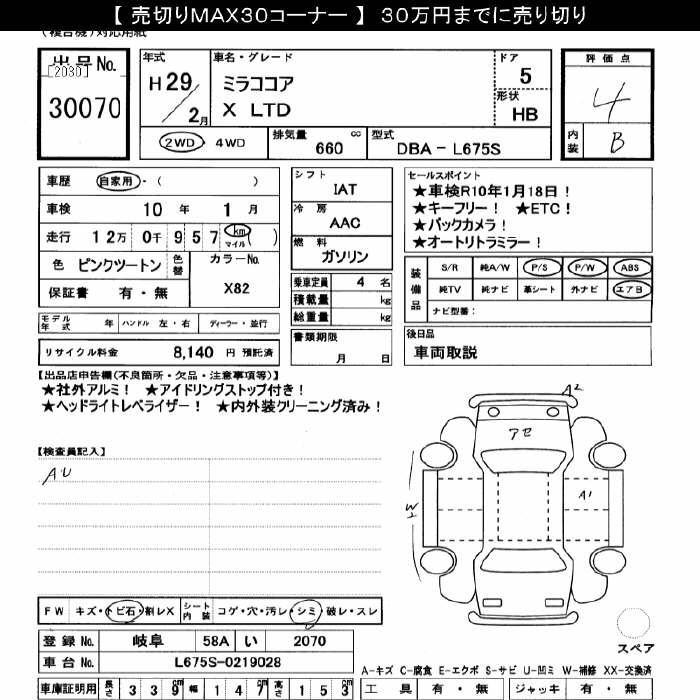 【 売切りMAX30コーナー 】 30万円までに売り切り
(複合機)対応用紙
出品No.
[2030]
30070
年式
H 29／2月
車名・グレード
ミラココア
X LTD
ドア
5
形状
HB
評価点
4
内装 B
2WD・4WD
排気量 cc
660
型式
DBA－L675S
車歴 自家用・( )
車検 10年 1月
走行 12万 0千 957 km マイル ( )
色 ピンクツートン 色替
カラーNo.
X82
保証書 有・無
シフト
IAT
冷房
AAC
燃料
ガソリン
乗車定員 4 名
積載量 kg
総重量 kg
セールスポイント
★車検R10年1月18日！
★キーフリー！ ★ETC！
★バックカメラ！
★オートリトラミラー！
装備品
S/R 純A/W P/S P/W ABS
純TV 純ナビ 革シート 外ナビ エアB
ナビ型番：
モデル年式 年 ハンドル 左・右 ディーラー・並行
書類期限
月 日
後日品
車両取説
リサイクル料金 8,140 円 預託済
【出品店申告欄(不良箇所・欠品・注意事項等)】
★社外アルミ！ ★アイドリングストップ付き！
★ヘッドライトレベライザー！ ★内外装クリーニング済み！
【検査員記入】
AU
A2
アセ
A1
W1
FW キズ・トビ石・割レX シート内装 コゲ・穴・汚レ・シミ・破レ・スレ
登録No. 岐阜 58A い 2070
車台No. L675S-0219028
スペア
A-キズ C-腐食 E-エクボ S-サビ U-凹ミ W-補修 XX-交換済
車庫証明用 長さ 339 cm 幅 147 cm 高さ 153 cm
工具 有・無 ジャッキ 有・無